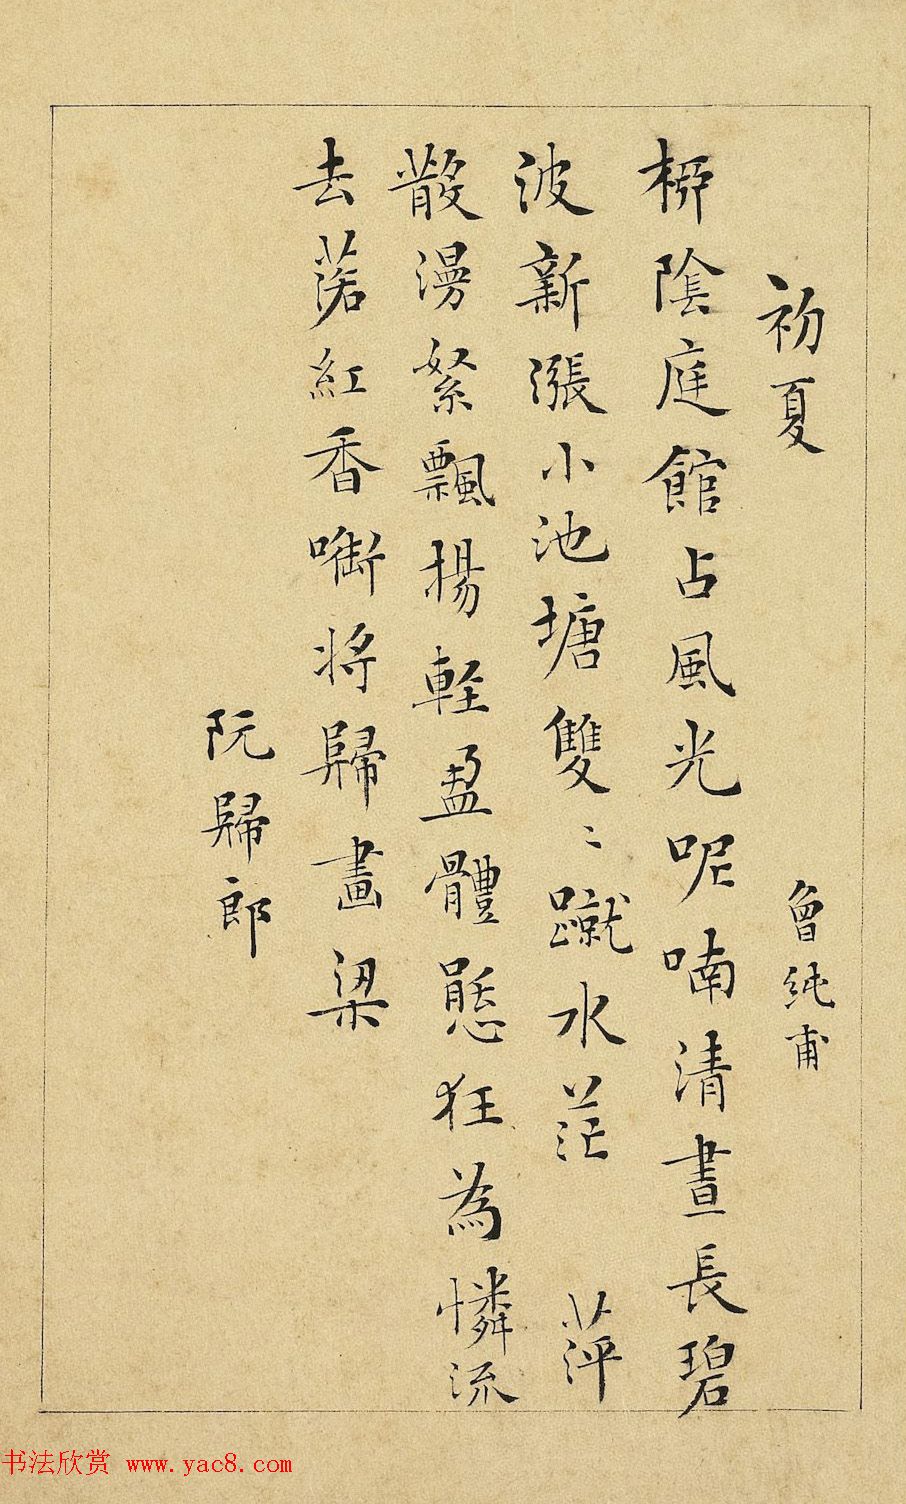 初夏
曾純甫
桺陰庭館占風光呢喃清晝長碧
波新漲小池塘雙〻蹴水茫 萍
散漫絮飄揚輕盈體態狂為憐流
去落紅香啣將歸畫梁
阮歸郎
书法欣赏 www.yac8.com